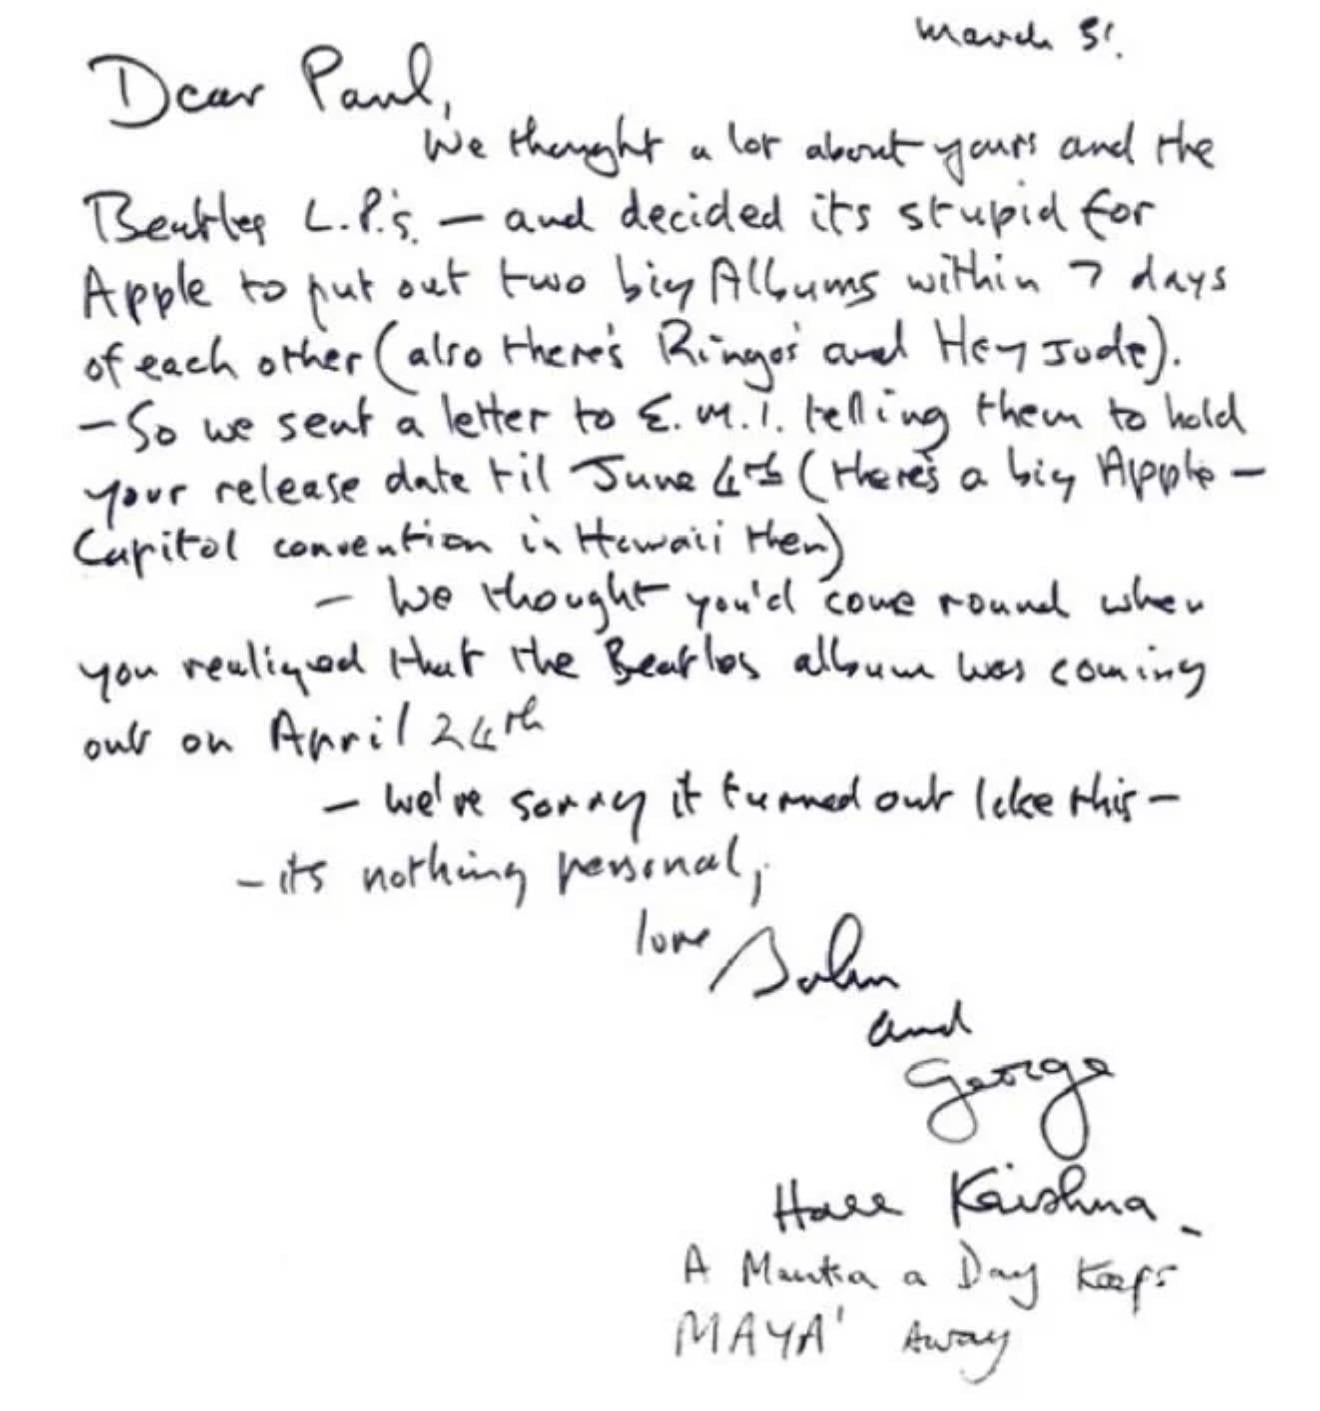 March 31.
Dear Paul,
We thought a lot about yours and the
Beatles L.P.'s. — and decided its stupid for
Apple to put out two big Albums within 7 days
of each other (also there's Ringo's and Hey Jude).
— So we sent a letter to E.M.I. telling them to hold
your release date til June 4th (there's a big Apple —
Capitol convention in Hawaii then)
— We thought you'd come round when
you realized that the Beatles album was coming
out on April 24th
— We're sorry it turned out like this —
— its nothing personal,
love John
and
George
Hare Krishna -
A Mantra a Day Keeps
"MAYA" Away